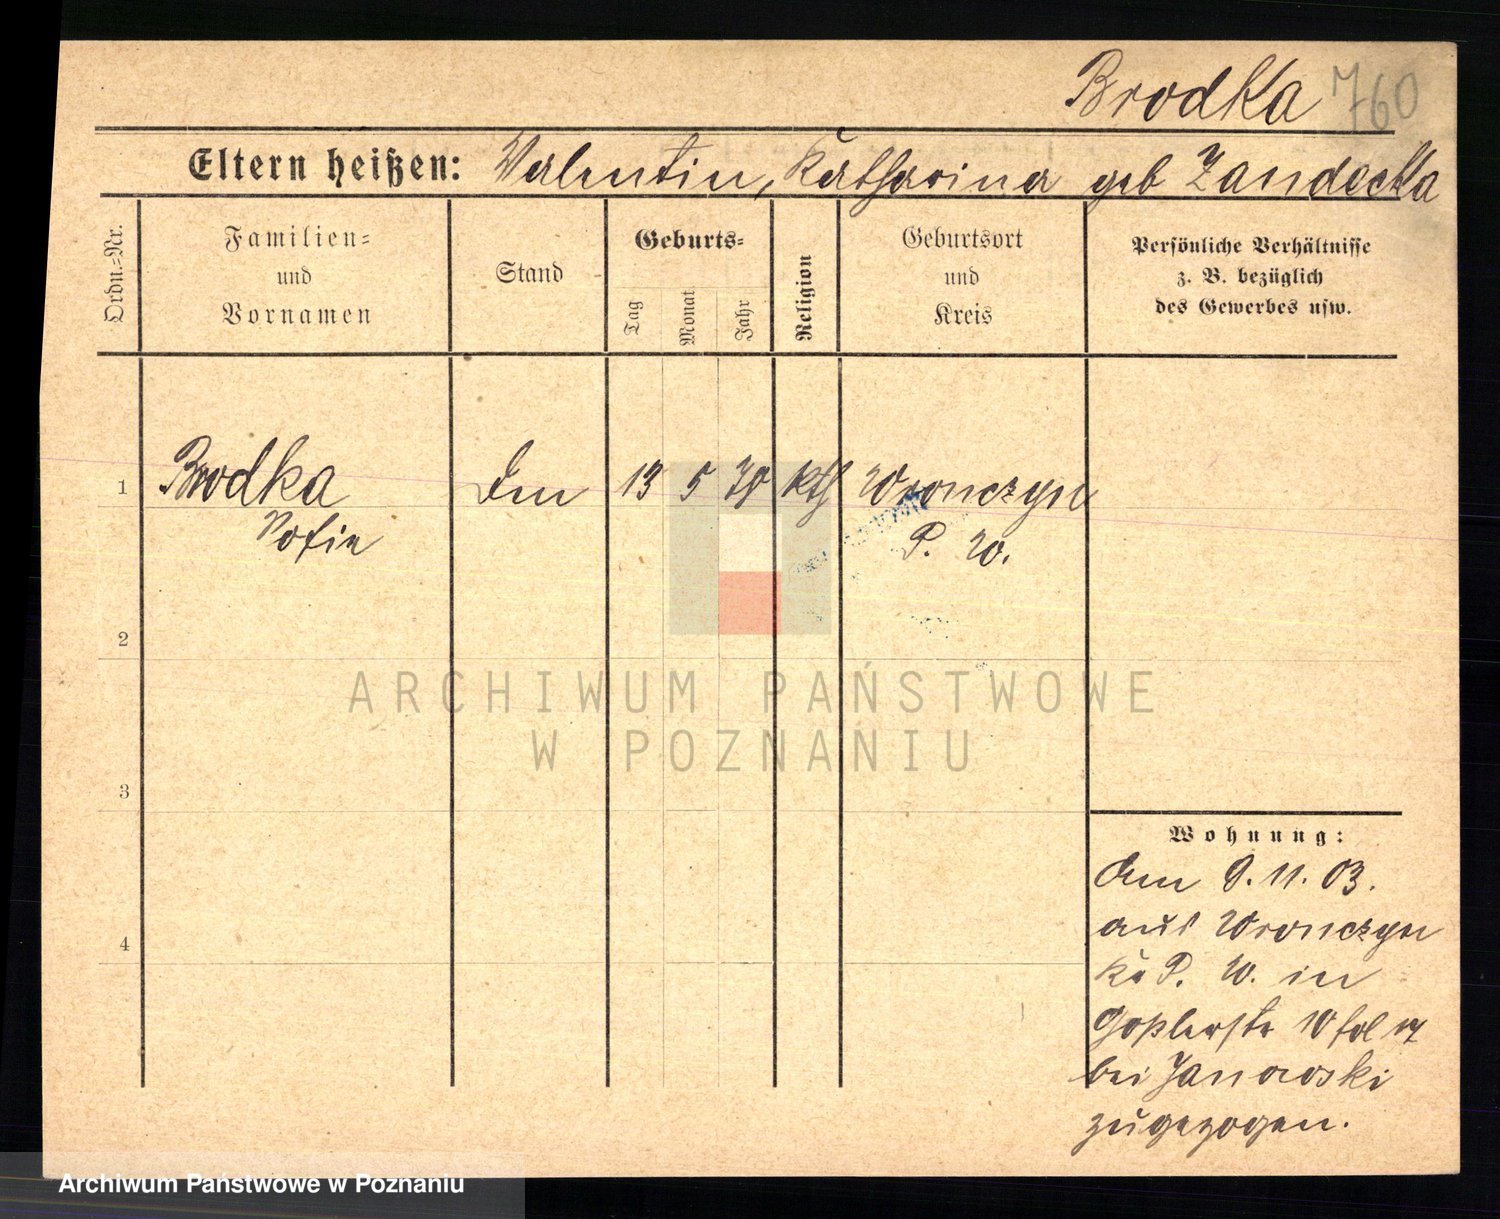 Brodka 760
Eltern heißen: Valentin, Katharina geb Zandecka
Ordn.-Nr.
Familien-
und
Vornamen
Stand
Geburts-
Tag
Monat
Jahr
Religion
Geburtsort
und
Kreis
Persönliche Verhältnisse
z. B. bezüglich
des Gewerbes usw.
1 Brodka 13 5 kth Wronczyn
Sofie P. W.
2
ARCHIWUM PAŃSTWOWE
W POZNANIU
3
Wohnung:
Am 9.11.03.
4 aus Wronczyn
Kr P. W. in
Goßlerstr 10
bei Janowski
zugezogen.
Archiwum Państwowe w Poznaniu